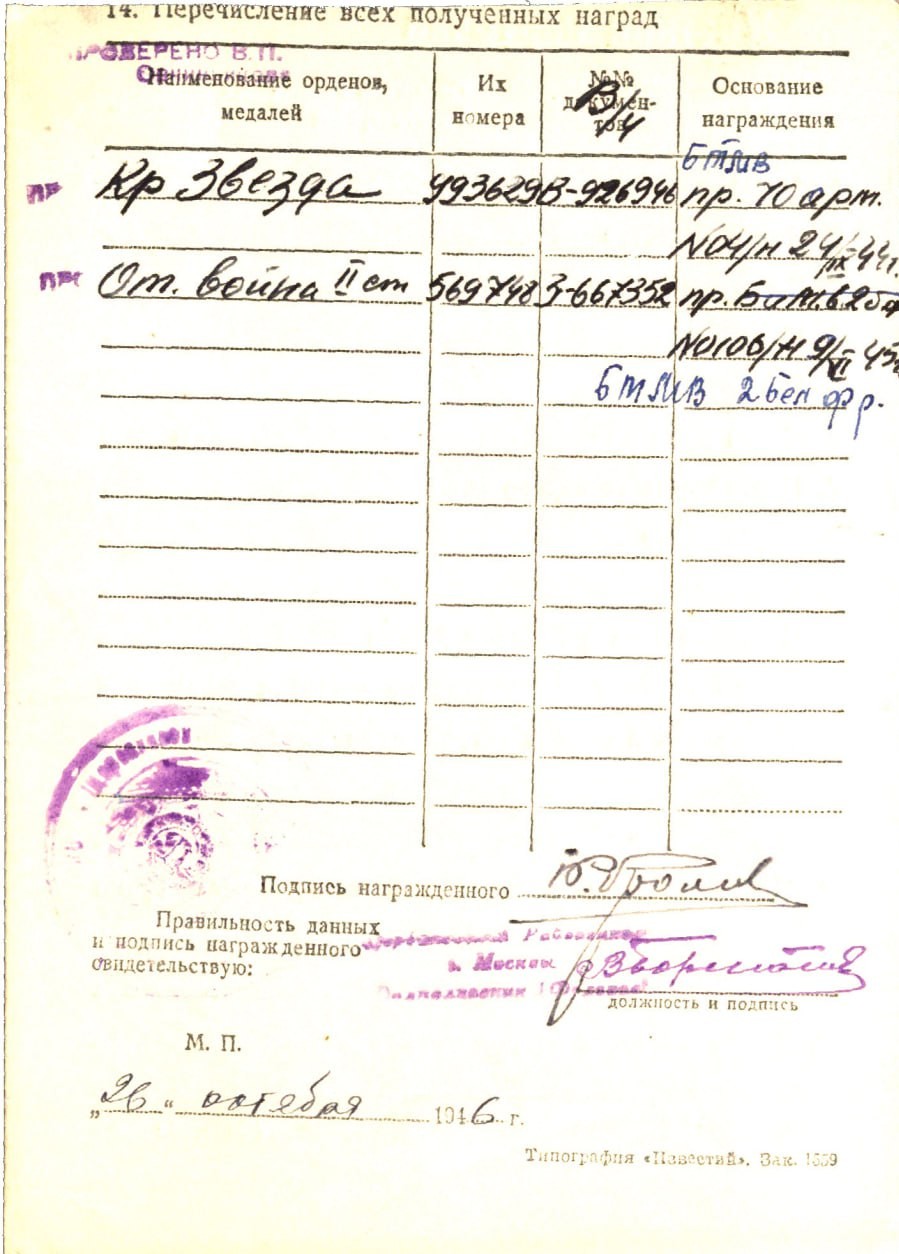 14. Перечисление всех полученных наград
ПРОВЕРЕНО В.П.
Наименование орденов, медалей
Их номера
№№ документов
В/Ч
Основание награждения
БТМВ
Кр Звезда 493629 В-926946 пр. 70 арт.
N04/н 24/IX-44г.
От. война II ст 569748 З-667352 пр. БиМВ 2бф
N0106/н 9/VI 45г
БТМВ 2 бел фр.
Подпись награжденного
Правильность данных
и подпись награжденного
свидетельствую:
г. Москвы
должность и подпись
М. П.
„26“ октября 1946 г.
Типография «Известий». Зак. 1559